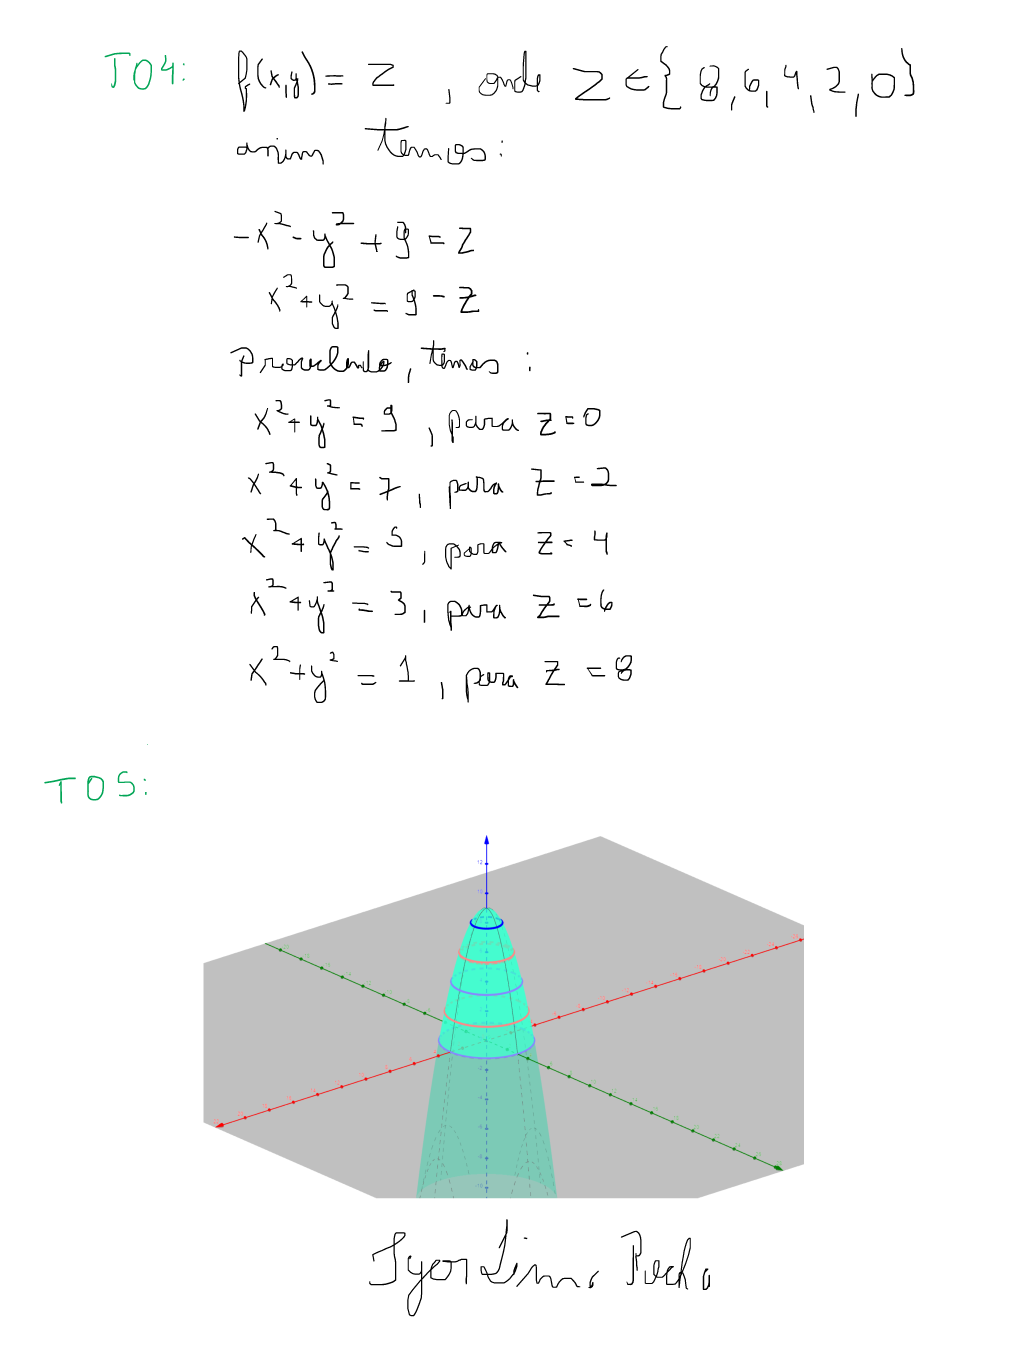 T04: f(x,y) = z , onde z ∈ { 8, 6, 4, 2, 0 }
assim temos:
-x² - y² + 9 = z
x² + y² = 9 - z
Procedendo, temos :
x² + y² = 9 , para z = 0
x² + y² = 7 , para z = 2
x² + y² = 5 , para z = 4
x² + y² = 3 , para z = 6
x² + y² = 1 , para z = 8
T05:
12
10
Igor Lima Rocha